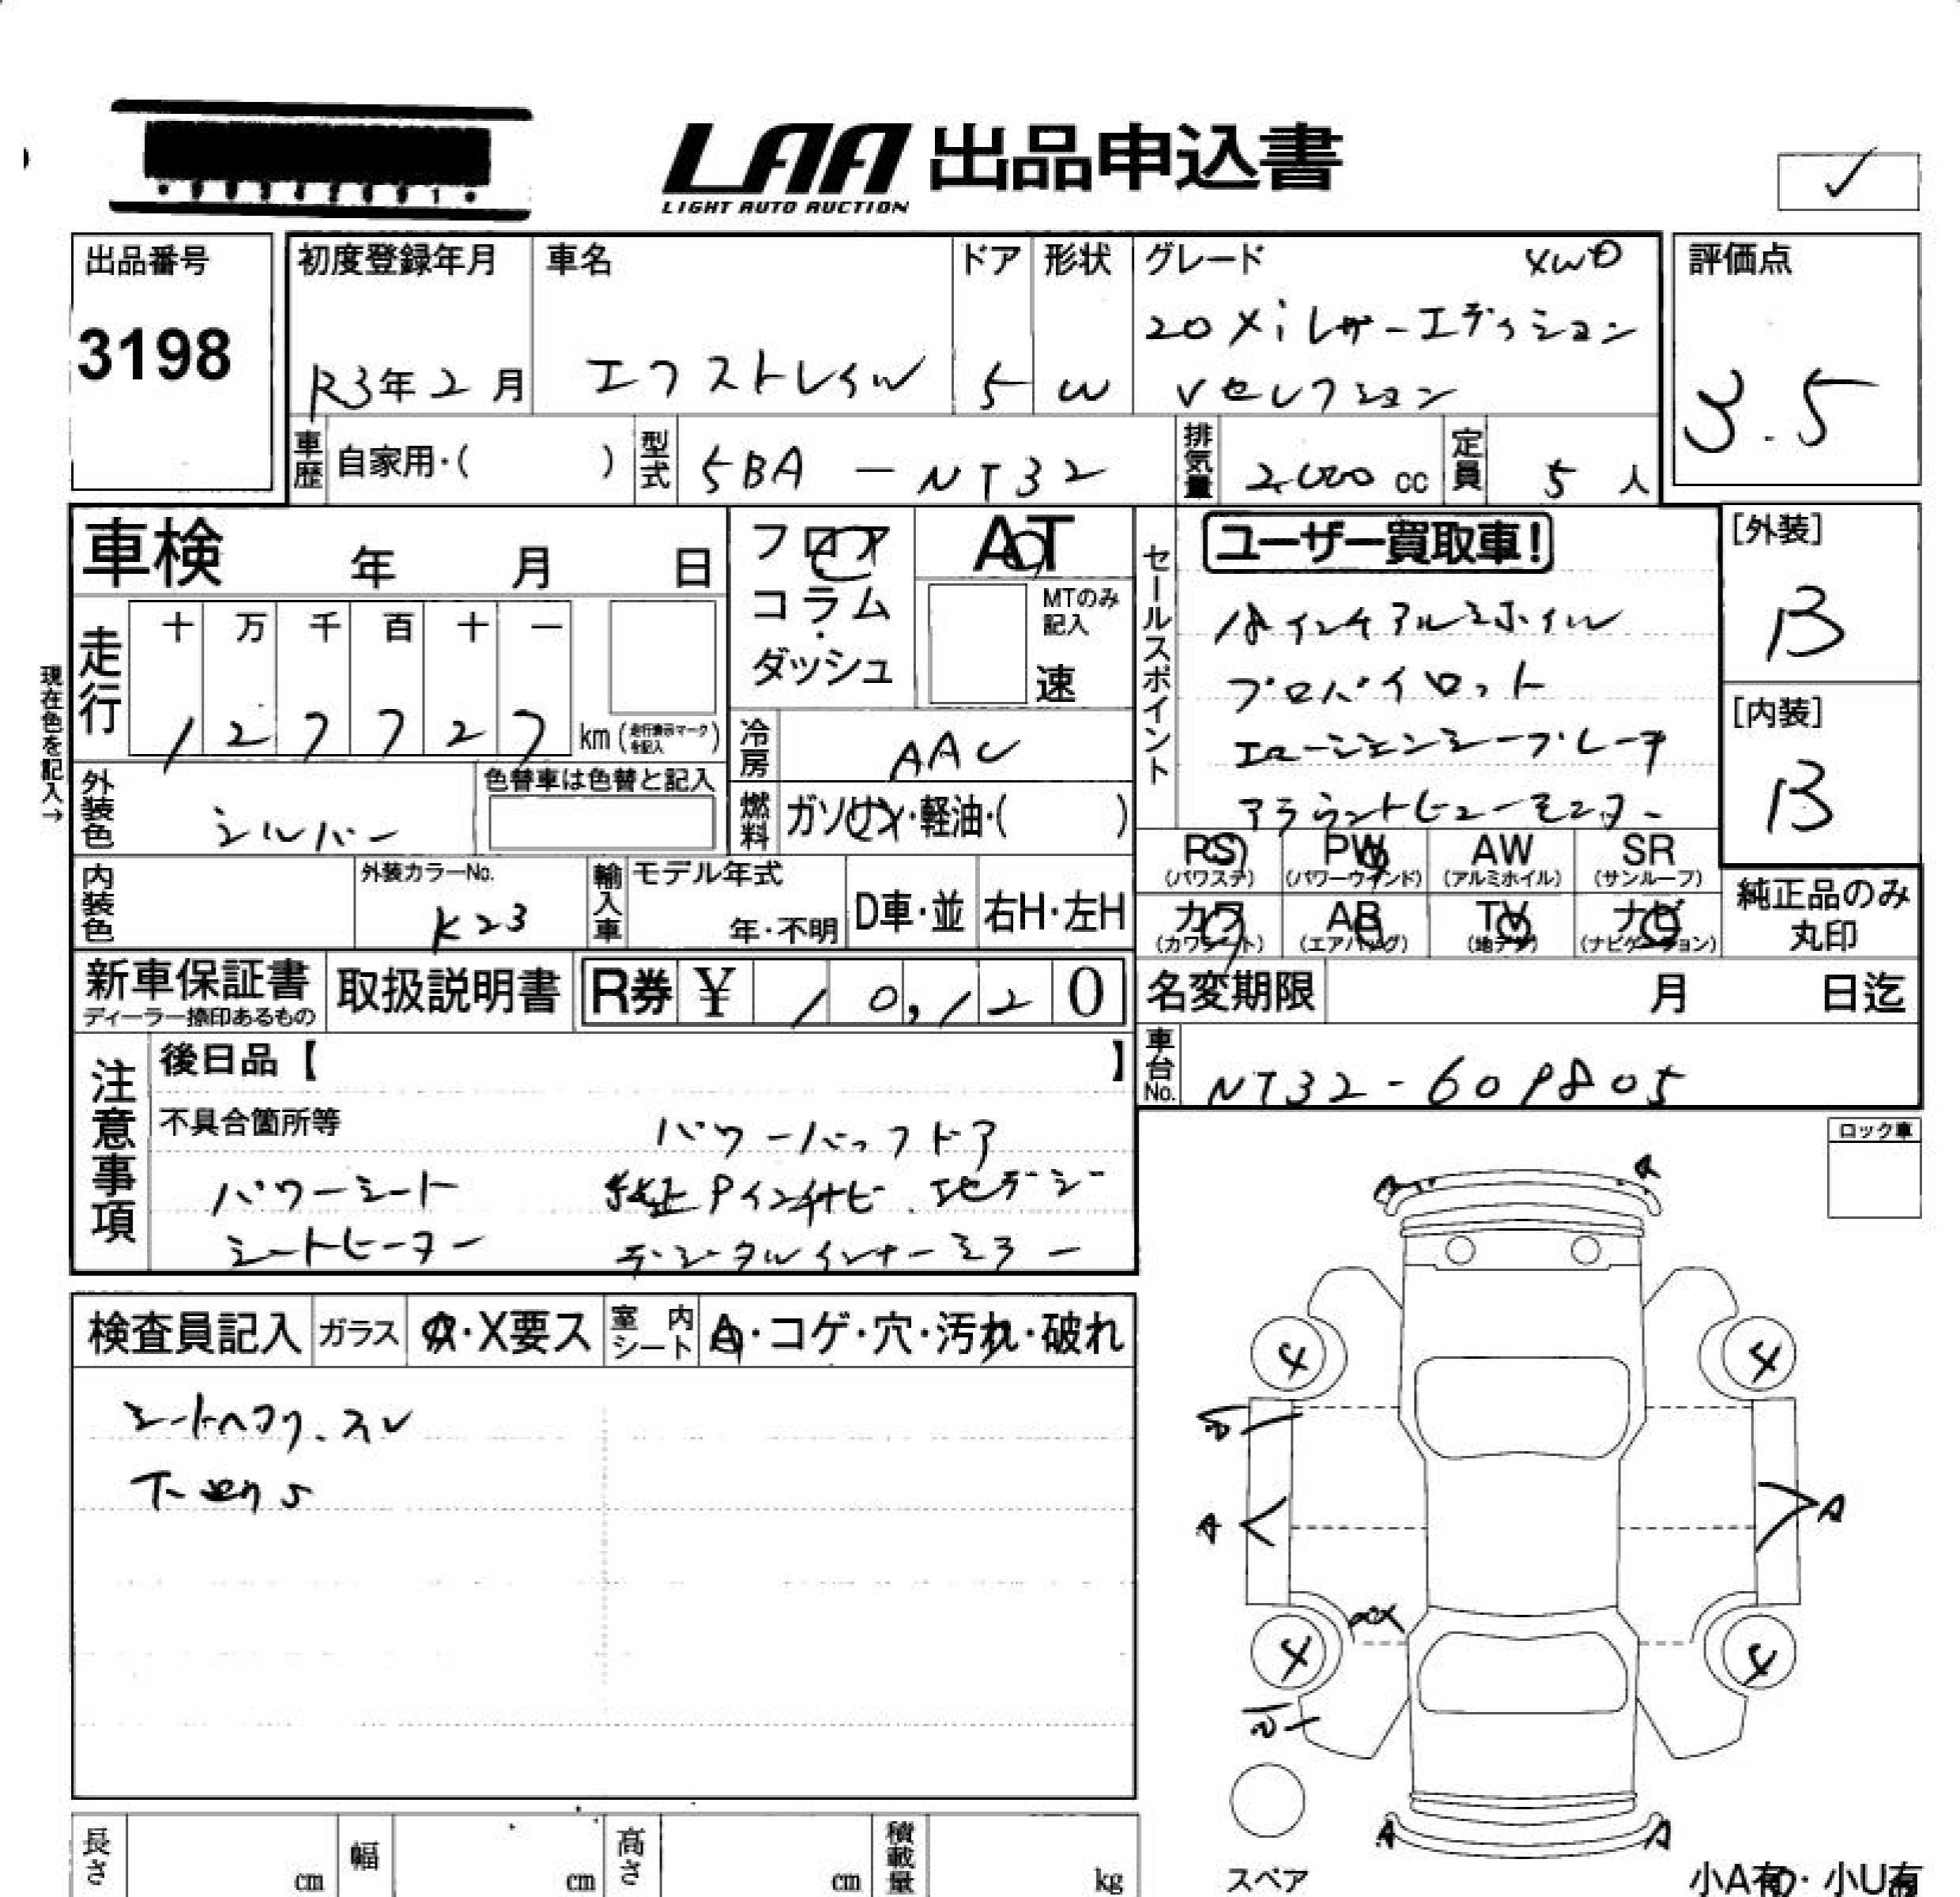 LAA 出品申込書
LIGHT AUTO AUCTION
出品番号
3198
初度登録年月
R3年2月
車名
エクストレイル
ドア
5
形状
W
グレード
4WD
20Xi レザーエディション
Vセレクション
評価点
3.5
車歴
自家用・( )
型式
5BA-NT32
排気量
2,000 cc
定員
5人
車検 年 月 日
フロア・コラム・ダッシュ
AT
MTのみ記入
速
走行
十 万 千 百 十 一
1 2 7 7 2 7 km (走行表示マークを記入)
現在色を記入→
冷房
AAC
外装色
シルバー
色替車は色替と記入
燃料
ガソリン・軽油・( )
内装色
外装カラーNo.
K23
輸入車
モデル年式
年・不明
D車・並
右H・左H
セールスポイント
ユーザー買取車!
18インチアルミホイル
プロパイロット
エマージェンシーブレーキ
アラウンドビューモニター
[外装]
B
[内装]
B
RS (パワステ)
PW (パワーウインド)
AW (アルミホイル)
SR (サンルーフ)
カワ (カワシート)
AB (エアバッグ)
TV (地デジ)
ナビ (ナビゲーション)
純正品のみ丸印
新車保証書
ディーラー捺印あるもの
取扱説明書
R券 ¥ 10,120
名変期限 月 日迄
車台No.
NT32-609805
注意事項
後日品【 】
不具合箇所等
パワーバックドア
パワーシート
純正9インチナビ.フルセグ
シートヒーター
デジタルインナーミラー
ロック車
検査員記入
ガラス
A・X要ス
室内シート
A・コゲ・穴・汚れ・破れ
シートヘタリ、スレ
A
A
4
4
A
A
4
4
A
A
スペア
小A有・小U有
長さ cm
幅 cm
高さ cm
積載量 kg